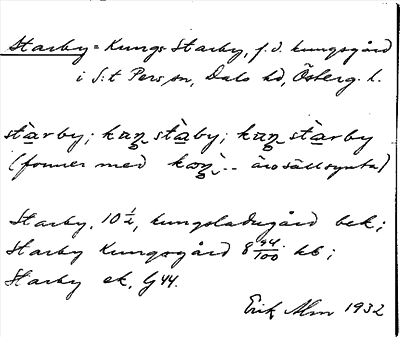 Starby = Kungs Starby, f.d. kungsgård
i S:t Pers sn, Dals hd, Österg. l.
stàrby; kuŋ stàby; kuŋ stàrby
(former med kuŋ`-- äro sällsynta)
Starby, 10 1/2, kungsladugård bek;
Starby Kungsgård 8 94/100 kb;
Starby ek. G 44.
Erik Alm 1932